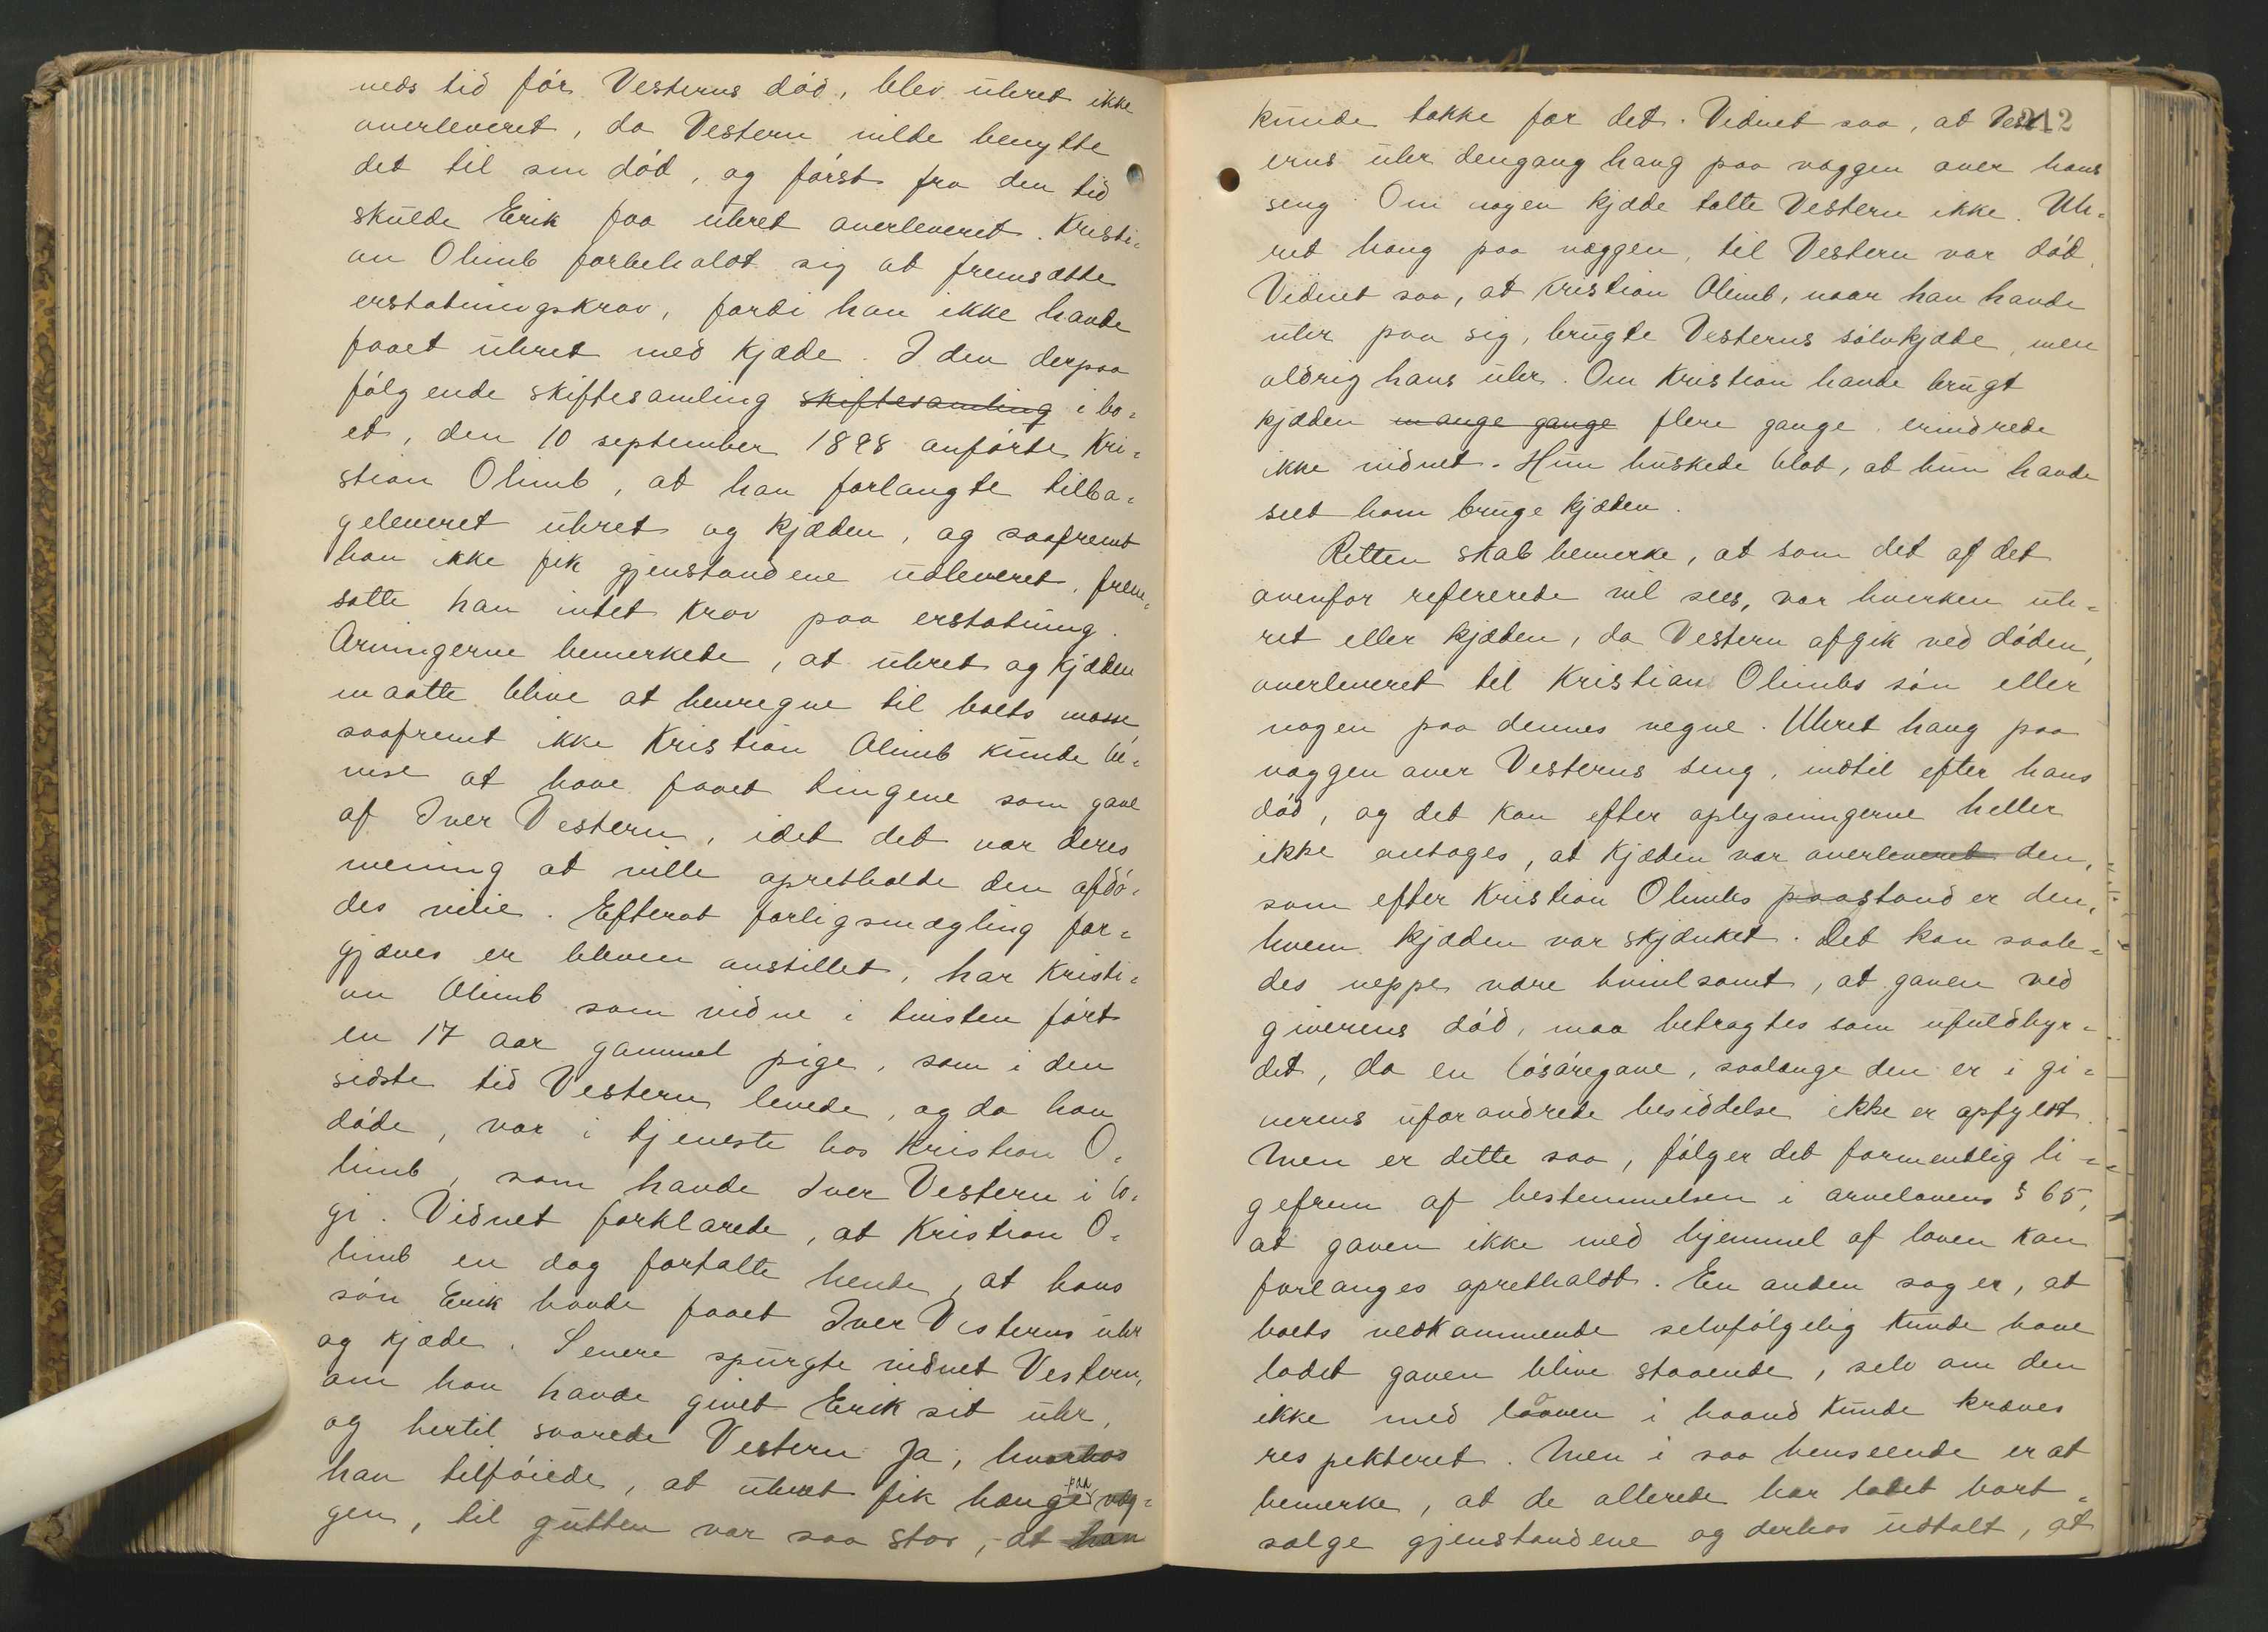 neds tid før Vesterns død, blev uhret ikke
overleveret, da Vestern vilde benytte
det til sin død, og først fra den tid
skulde Erik faa uhret overleveret. Kristi=
an Olimb forbeholdt sig at fremsætte
erstatningskrav, fordi han ikke havde
faaet uhret med kjæde. I den derpaa
følgende skiftesamling skiftesamling i bo=
et, den 10 september 1898 anførte Kri=
stian Olimb, at han forlangte tilba=
geleveret uhret og kjæden, og saafremt
han ikke fik gjenstandene udleveret, frem=
satte han intet krav paa erstatning.
Arvingerne bemerkede, at uhret og kjæden
maatte blive at henregne til boets masse,
saafremt ikke Kristian Olimb kunde be=
vise at have faaet tingene som gave
af Iver Vestern, idet det var deres
mening at ville opretholde den afdø=
des vilie. Efterat forligsmægling for=
gjæves er bleven anstillet, har Kristi=
an Olimb som vidne i tvisten ført
en 17 aar gammel pige, som i den
sidste tid Vestern levede, og da han
døde, var i tjeneste hos Kristian O=
limb, som havde Iver Vestern i lo=
gi. Vidnet forklarede, at Kristian O=
limb en dag fortalte hende, at hans
søn Erik havde faaet Iver Vesterns uhr
og kjæde. Senere spurgte vidnet Vestern,
om han havde givet Erik sit uhr,
og hertil svarede Vestern Ja, hvorhos
han tilføiede, at uhret fik hænge paa væg=
gen, til gutten var saa stor, at han
212
kunde takke for det. Vidnet saa, at Vest
erns uhr dengang hang paa væggen over hans
seng Om nogen kjæde talte Vestern ikke. Uh=
ret hang paa væggen, til Vestern var død.
Vidnet saa, at Kristian Olimb, naar han havde
uhr paa sig, brugte Vesterns sølvkjæde, men
aldrig hans uhr. Om Kristian havde brugt
kjæden mange gange flere gange erindrede
ikke vidnet. Hun huskede blot, at hun havde
seet ham bruge kjæden.
Retten skal bemerke, at som det af det
ovenfor refererede vil sees, var hverken uh=
ret eller kjæden, da Vestern afgik ved døden,
overleveret til Kristian Olimbs søn eller
nogen paa dennes vegne. Uhret hang paa
væggen over Vesterns seng, indtil efter hans
død, og det kan efter oplysningerne heller
ikke antages, at kjæden var overleveret den,
som efter Kristian Olimbs paastand er den,
hvem kjæden var skjænket. Det kan saale=
des neppe være tvivlsomt, at gaven ved
giverens død, maa betragtes som ufuldbyr=
det, da en løsøregave, saalænge den er i gi=
verens uforandrede besiddelse ikke er opfyldt.
Men er dette saa, følger det formentlig li=
gefrem af bestemmelsen i arvelovens § 65,
at gaven ikke med hjemmel af loven kan
forlanges opretholdt. En anden sag er, at
boets vedkommende selvfølgelig kunde have
ladet gaven blive staaende, selv om den
ikke med loven i haand kunde kræves
respekteret. Men i saa henseende er at
bemerke, at de allerede har ladet bort=
sælge gjenstandene og derhos udtalt, at